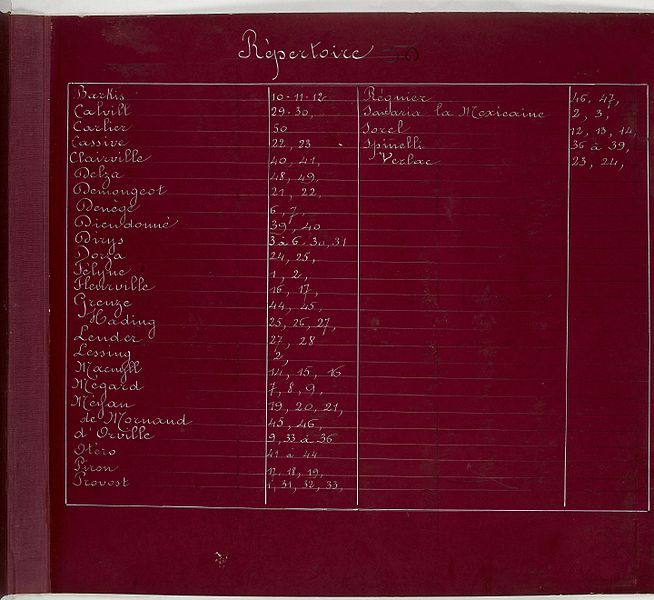 Répertoire
Barkis 10-11-12
Calvill 29-30,
Carlier 50
Cassive 22, 23
Clairville 40, 41,
Delza 48, 49,
Demongeot 21, 22,
Denège 6, 7,
Dieudonné 39, 40
Dirys 3 à 6. 30, 31
Dorza 24, 25,
Félyne 1, 2,
Fleurville 16, 17,
Greuze 44, 45,
Hading 25, 26, 27,
Lender 27, 28
Lessing 2,
14, 15, 16
Mégard 7, 8, 9,
Méyan 19, 20, 21,
de Mornand 45, 46,
d'Orville 9, 33 à 36
Otéro 41 à 44
Piron 17, 18, 19,
Provost 1, 31, 32, 33,
Régnier 46, 47,
la Mexicaine 2, 3,
Sorel 12, 13, 14,
Spinelli 36 à 39,
Verlac 23, 24,